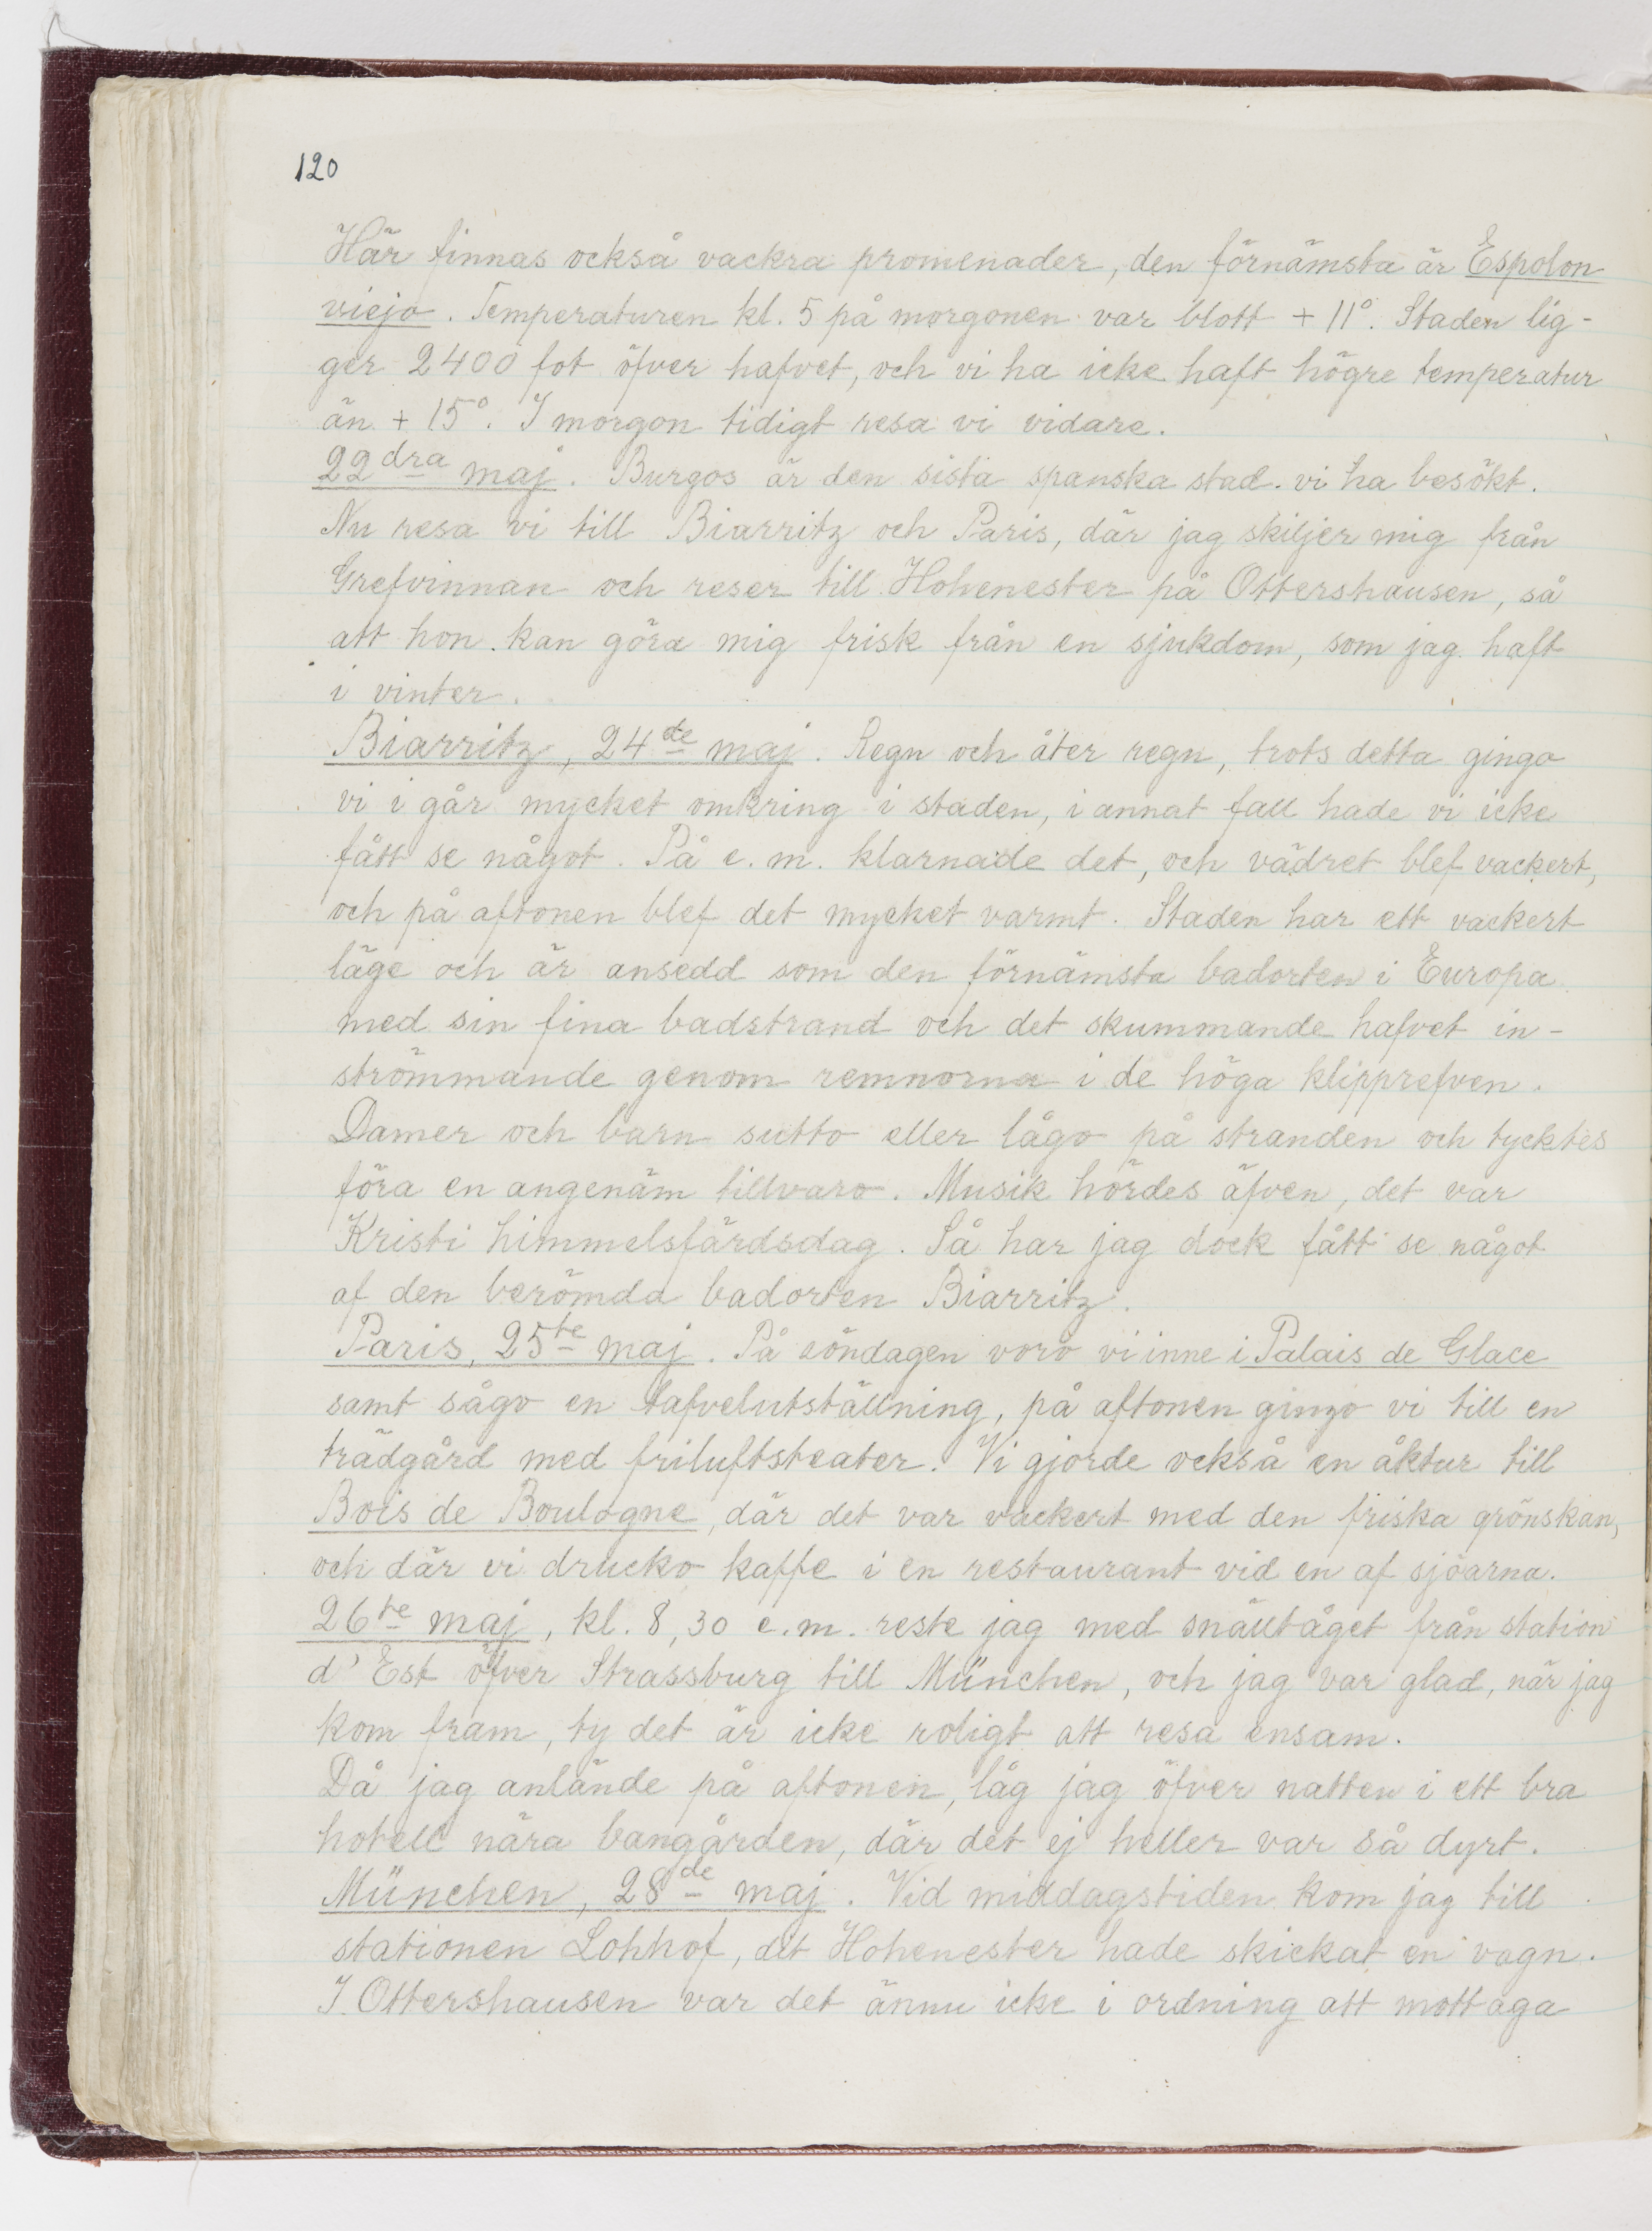 120
Här finnas också vackra promenader, den förnämsta är Espolon
viejo. Temperaturen kl. 5 på morgonen var blott + 11°. Staden lig-
ger 2400 fot öfver hafvet, och vi ha icke haft högre temperatur
än + 15°. I morgon tidigt resa vi vidare.
22dra maj. Burgos är den sista spanska stad vi ha besökt.
Nu resa vi till Biarritz och Paris, där jag skiljer mig från
Grefvinnan och reser till Hohenester på Ottershausen, så
att hon kan göra mig frisk från en sjukdom, som jag haft
i vinter.
Biarritz, 24de maj. Regn och åter regn, trots detta gingo
vi i går mycket omkring i staden, i annat fall hade vi icke
fått se något. På e.m. klarnade det, och vädret blef vackert,
och på aftonen blef det mycket varmt. Staden har ett vackert
läge och är ansedd som den förnämsta badorten i Europa
med sin fina badstrand och det skummande hafvet in-
strömmande genom remnorna i de höga klipprefven.
Damer och barn sutto eller lågo på stranden och tycktes
föra en angenäm tillvaro. Musik hördes äfven, det var
Kristi himmelsfärdsdag. Så har jag dock fått se något
af den berömda badorten Biarritz.
Paris, 25te maj. På söndagen voro vi inne i Palais de Glace
samt sågo en tafvelutställning, på aftonen gingo vi till en
trädgård med friluftsteater. Vi gjorde också en åktur till
Bois de Boulogne, där det var vackert med den friska grönskan,
och där vi drucko kaffe i en restaurant vid en af sjöarna.
26te maj, kl. 8,30 e.m. reste jag med snälltåget från station
d'Est öfver Strassburg till München, och jag var glad, när jag
kom fram, ty det är icke roligt att resa ensam.
Då jag anlände på aftonen, låg jag öfver natten i ett bra
hotell nära bangården, där det ej heller var så dyrt.
München, 28de maj. Vid middagstiden kom jag till
stationen Lohhof, dit Hohenester hade skickat en vagn.
I Ottershausen var det ännu icke i ordning att mottaga